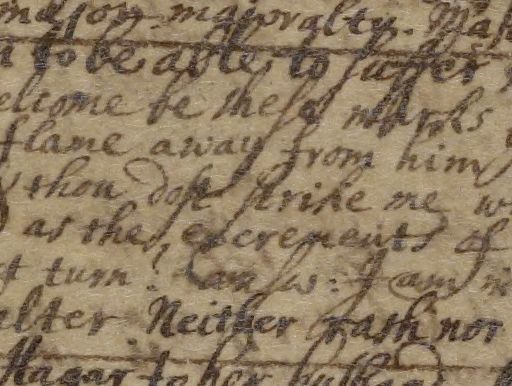 mayoralty. Mast
to be able to suffer
elcome be these marks
flame away from him
thou dost strike me w
as the excrements of
t turn? I answ: I am n
alter. Neither rash nor
Hagar to her